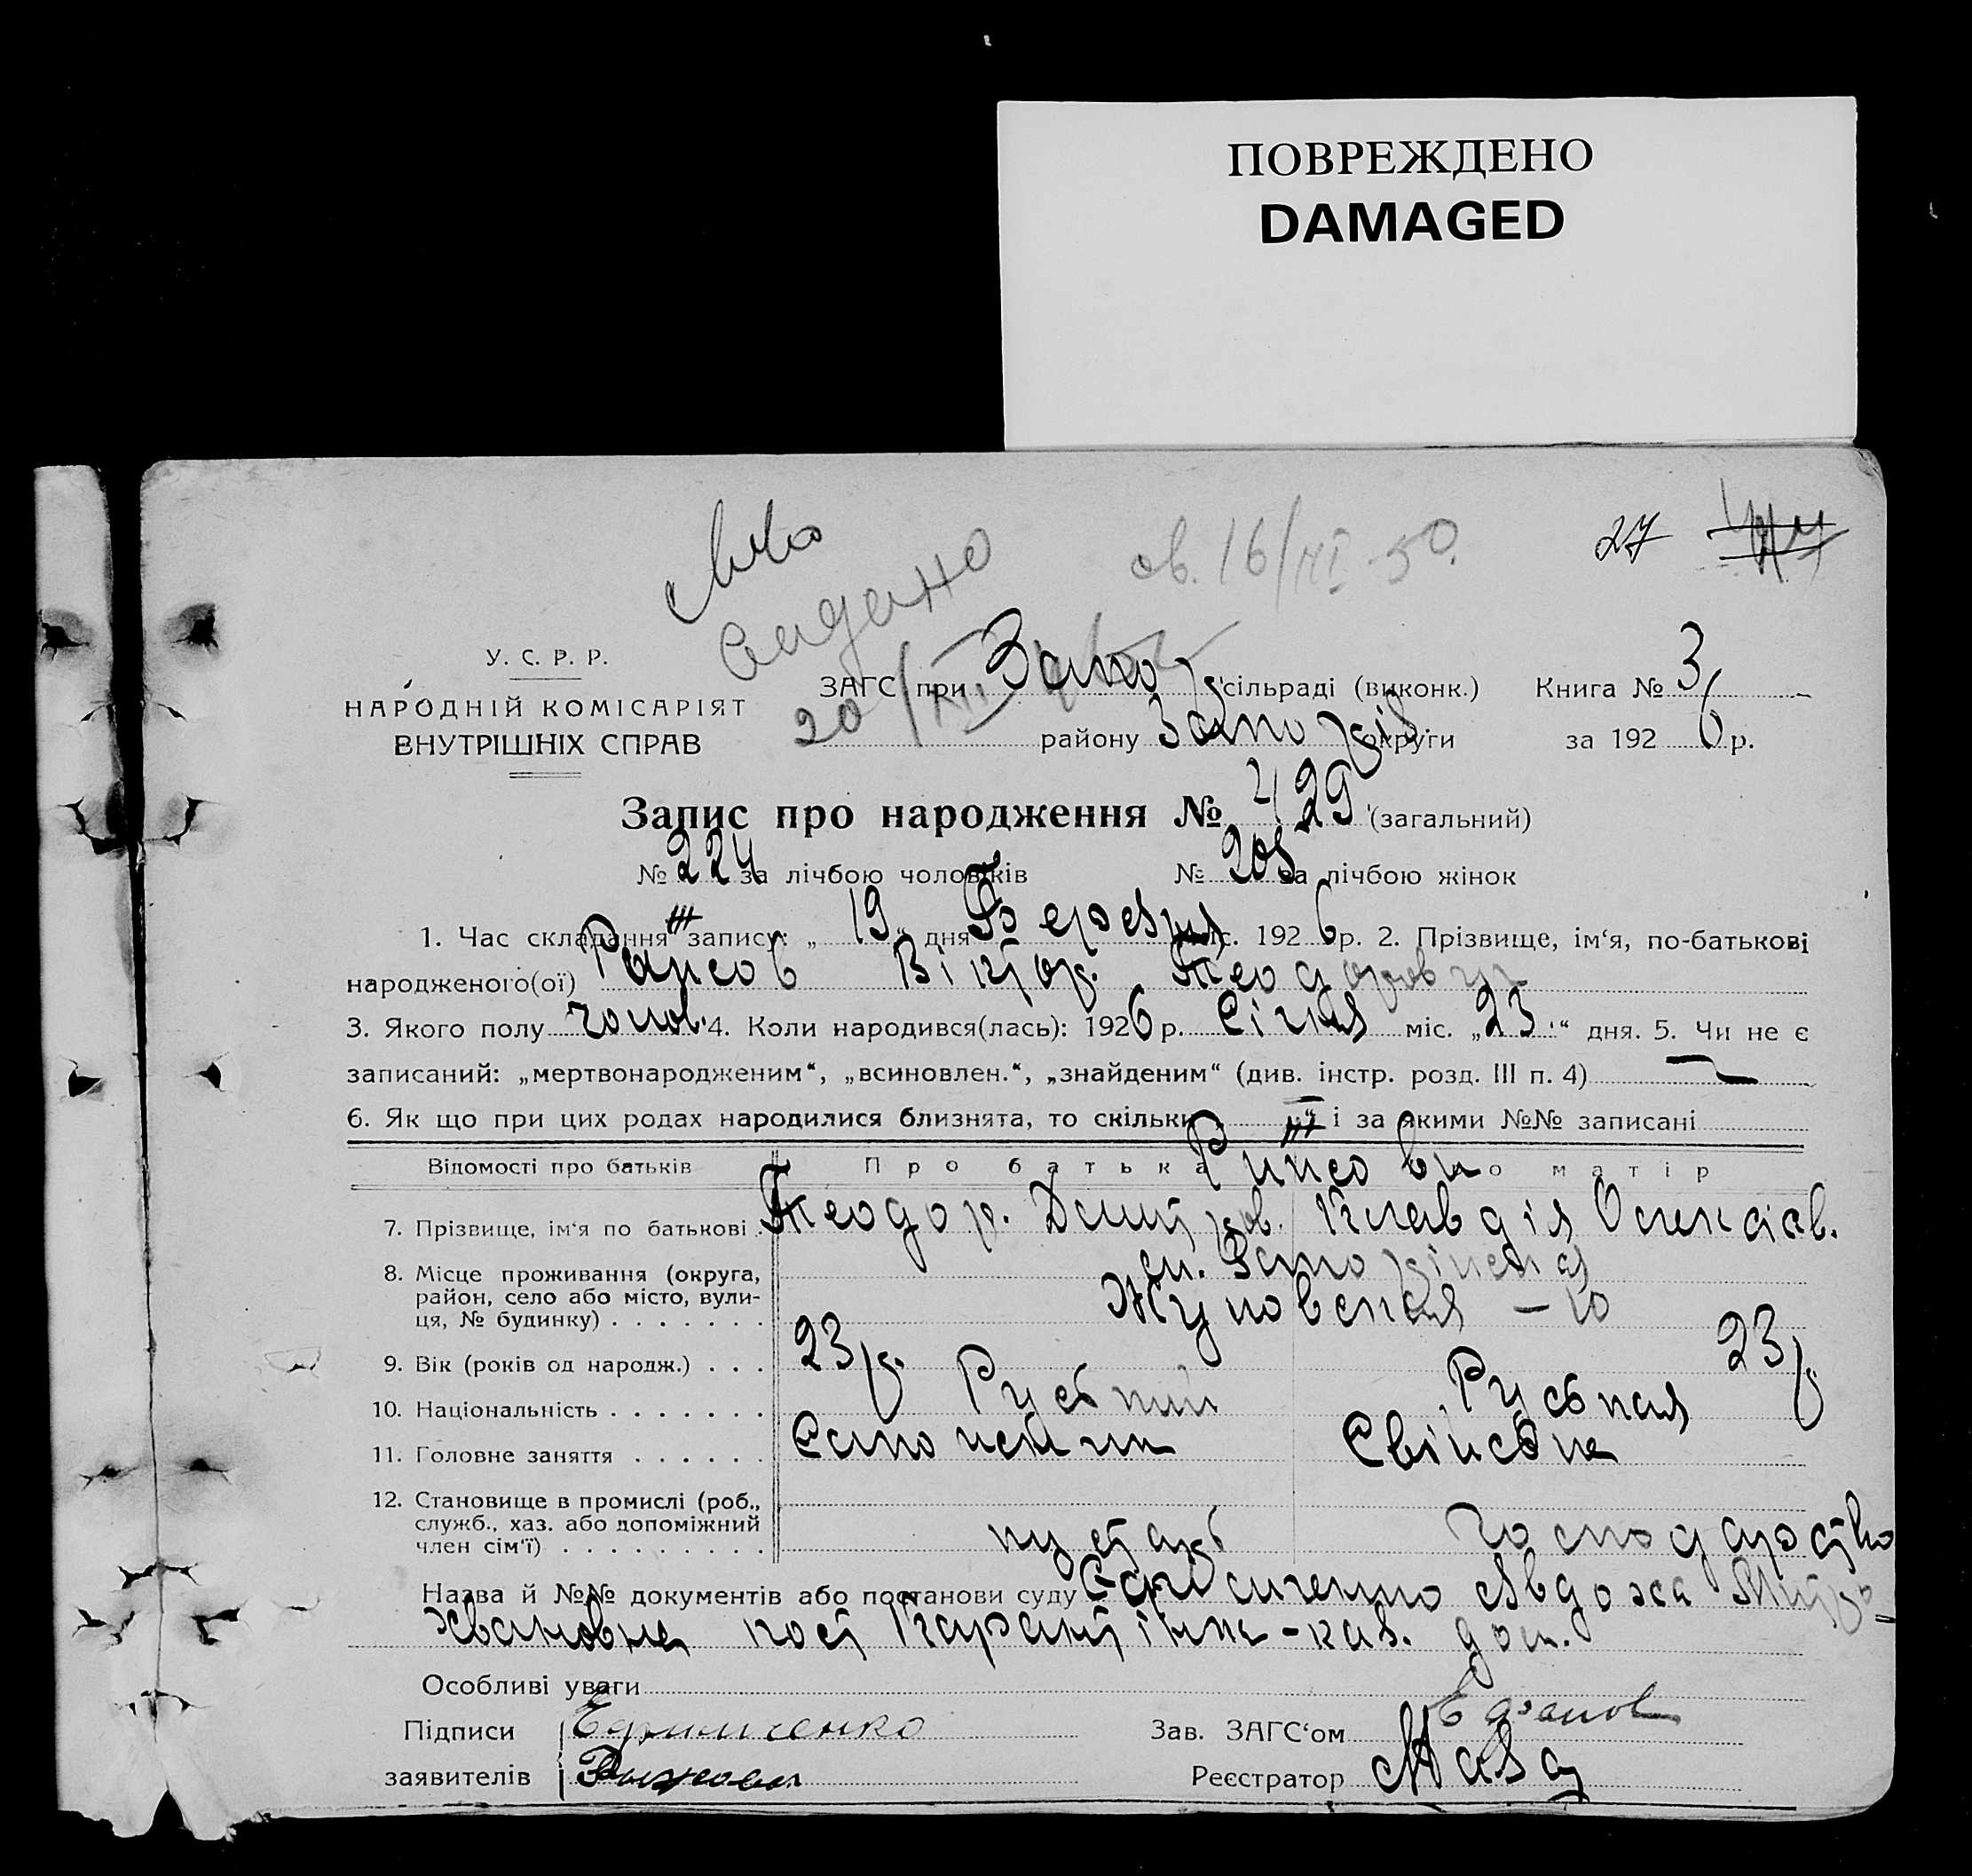 ПОВРЕЖДЕНО
DAMAGED
27
св. 16/III-50.
видано
20/III
У. С. Р. Р.
НАРОДНІЙ КОМІСАРІЯТ
ВНУТРІШНІХ СПРАВ
ЗАГС при Запо сільраді (виконк.) Книга № 3
району Запоріз. округи за 1926 р.
Запис про народження № 429 (загальний)
№ 224 за лічбою чоловіків № 205 за лічбою жінок
1. Час складання запису: „19“ дня Березня міс. 1926 р. 2. Прізвище, ім‘я, по-батькові
народженого(ої) Віктор. Теодорович
3. Якого полу чолов. 4. Коли народився(лась): 1926 р. Січня міс. „23“ дня. 5. Чи не є
записаний: „мертвонародженим“, „всиновлен.“, „знайденим“ (див. інстр. розд. III п. 4) —
6. Як що при цих родах народилися близнята, то скільки і за якими №№ записані
Відомості про батьків Про батька Про матір
7. Прізвище, ім‘я по батькові Теодор. Дмитров. Клавдія Олексіїв.
8. Місце проживання (округа, район, село або місто, вулиця, № будинку) Жуковская – 10
9. Вік (років од народж.) 23 р. 23 р.
10. Національність Руський Руськая
11. Головне заняття
12. Становище в промислі (роб., служб., хаз. або допоміжний член сім‘ї) кустарь господарство
Назва й №№ документів або постанови суду Явдоха Митро-
хвановна
Особливі уваги
Підписи заявителів Ефимченко
Зав. ЗАГС‘ом
Реєстратор